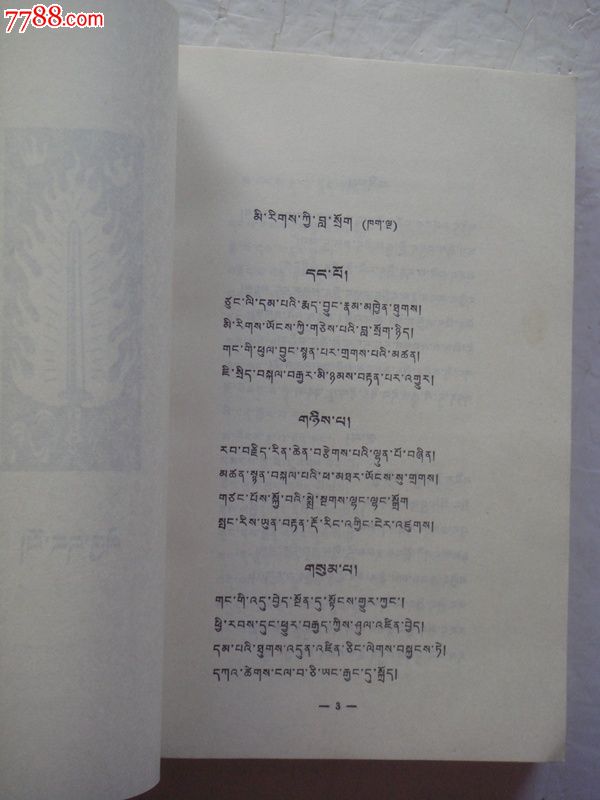 7788.com
མི་རིགས་ཀྱི་བླ་སྲོག (ཁག་ལྔ)
དང་པོ།
ཙུང་ལི་དམ་པའི་རྨད་བྱུང་རྣམ་མཁྱེན་ཐུགས།
མི་རིགས་ཡོངས་ཀྱི་གཅེས་པའི་བླ་སྲོག་ཉིད།
གང་གི་ཕུལ་བྱུང་སྙན་པར་གྲགས་པའི་མཚན།
ཇི་སྲིད་བསྐལ་བརྒྱར་མི་ཉམས་བརྟན་པར་འགྱུར།
གཉིས་པ།
རབ་བརྗིད་རིན་ཆེན་བརྩེགས་པའི་ལྷུན་པོ་བཞིན།
མཚན་སྙན་བསྐལ་པའི་ཕ་མཐར་ཡོངས་སུ་གྲགས།
གཙང་པོས་སྐྱོ་བའི་སྨྲེ་སྔགས་ལྷང་ལྷང་སྒྲོག
སྤང་རིས་ཡུན་བརྟན་རྡོ་རིང་འགྱིང་ངེར་འཛུགས།
གསུམ་པ།
གང་གི་འདུ་བྱེད་སྔོན་དུ་སྟོངས་གྱུར་ཀྱང་།
ཕྱི་རབས་དུང་ཕྱུར་བརྒྱད་ཀྱིས་ཤུལ་འཛིན་བྱེད།
དམ་པའི་ཐུགས་འདུན་འཛིན་ཅིང་ལེགས་བསྐྱངས་ཏེ།
དཀའ་ཚེགས་ངལ་བ་ཅི་ཡང་རྒྱང་དུ་སྐྲོད།
— 3 —